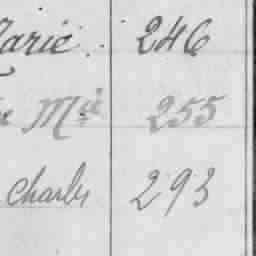 Marie 246
Mie 255
Charles 293